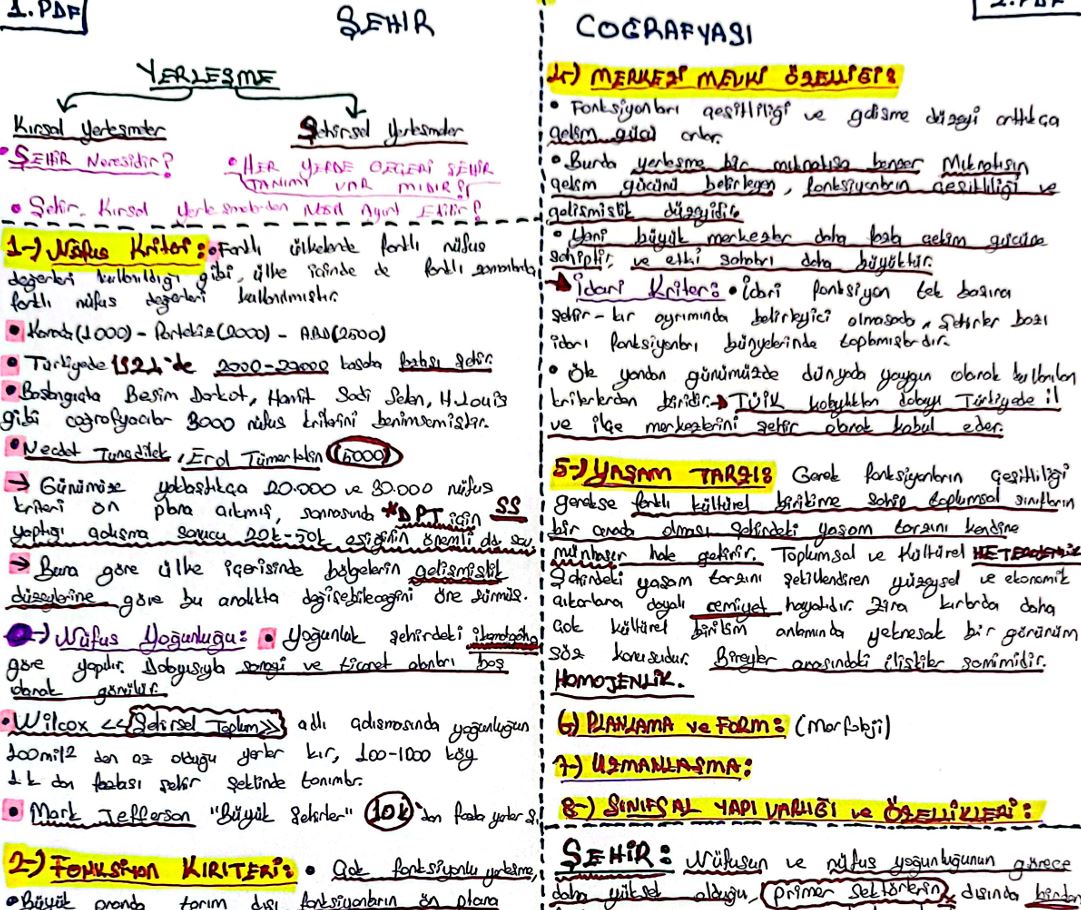 1.PDF
ŞEHİR
YERLEŞME
Kırsal Yerleşmeler
Şehirsel Yerleşmeler
• ŞEHİR Neresidir?
• HER YERDE GEÇERLİ ŞEHİR
TANIMI VAR MIDIR?
• Şehir, Kırsal yerleşmelerden Nasıl Ayırt Edilir?
1-) Nüfus Kriteri: • Farklı ülkelerde farklı nüfus
değerleri kullanıldığı gibi, ülke içinde de farklı zamanlarda
farklı nüfus değerleri kullanılmıştır.
• Kanada(1000) - Portekiz(2000) - ABD(2500)
• Türkiyede 1924'de 2000-20000 kasaba fazlası şehir.
• Başlangıçta Besim Darkot, Hamit Sadi Selen, H.Louis
gibi coğrafyacılar 3000 nüfus kriterini benimsemişler.
• Necdet Tunçdilek, Erol Tümertekin (5000)
→ Günümüze yaklaştıkça 20.000 ve 30.000 nüfus
kriteri ön plana çıkmış, sonrasında *DPT için SS
yaptığı çalışma sonucu 20k-50k eşiğinin önemli
→ Buna göre ülke içerisinde bölgelerin gelişmişlik
düzeylerine göre bu aralıkta değişebileceğini öne sürmüş.
-) Nüfus Yoğunluğu: • Yoğunluk şehirdeki ikametgaha
göre yapılır. Dolayısıyla sanayi ve ticaret alanları boş
olarak görülür.
• Wilcox <<Şehirsel Toplum>> adlı çalışmasında yoğunluğun
100mil2 den az olduğu yerler kır, 100-1000 köy
1k dan fazlası şehir şeklinde tanımlar.
• Mark Jefferson "Büyük Şehirler" (10k)'dan fazla yerler Ş.
2-) FONKSİYON KIRITERİ: • Çok fonksiyonlu yerleşme,
• Büyük oranda tarım dışı fonksiyonların ön plana
2.PDF
COĞRAFYASI
4-) MERKEZİ MEVKİ ÖZELLİĞİ:
• Fonksiyonları çeşitliliği ve gelişme düzeyi arttıkça
çekim gücü artar.
• Burda yerleşme bir mıknatısa benzer Mıknatısın
çekim gücünü belirleyen, fonksiyonların çeşitliliği ve
gelişmişlik düzeyidir.
• Yani büyük merkezler daha fazla çekim gücüne
sahiptir, ve etki sahaları daha büyüktür.
→ İdari Kriter: • İdari fonksiyon tek başına
şehir-kır ayrımında belirleyici olmasada, Şehirler bazı
idari fonksiyonları bünyelerinde toplamışlardır.
• Öte yandan günümüzde dünyada yaygın olarak kullanılan
kriterlerden biridir → TÜİK kolaylıktan dolayı Türkiyede il
ve ilçe merkezlerini şehir olarak kabul eder.
5-) YAŞAM TARZI: Gerek fonksiyonların çeşitliliği
gerekse farklı kültürel birikime sahip toplumsal sınıfların
bir arada olması şehirdeki yaşam tarzını kendine
münhasır hale getirir. Toplumsal ve Kültürel
Şehirdeki yaşam tarzını şekillendiren yüzeysel ve ekonomik
çıkarlara dayalı cemiyet hayatıdır. Zira kırlarda daha
çok kültürel birikim anlamında yeknesak bir görünüm
söz konusudur. Bireyler arasındaki ilişkiler samimidir.
HOMOJENLİK.
6-) PLANLAMA ve FORM: (Morfoloji)
7-) UZMANLAŞMA:
8-) SINIFSAL YAPI VARLIĞI ve ÖZELLİKLERİ:
ŞEHİR: Nüfusun ve nüfus yoğunluğunun görece
daha yüksek olduğu, (primer sektörlerin) dışında